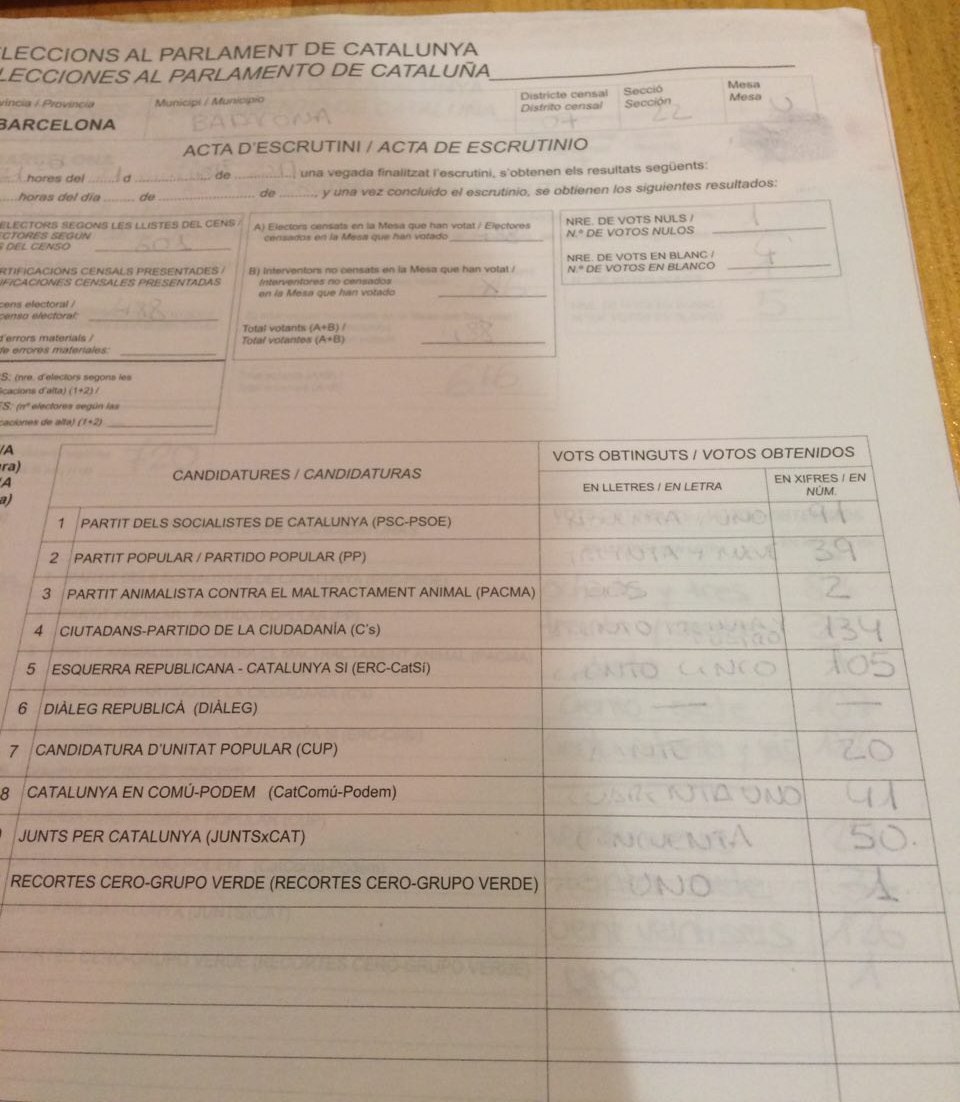 LECCIONS AL PARLAMENT DE CATALUNYA
LECCIONES AL PARLAMENTO DE CATALUÑA
víncia / Provincia Municipi / Municipio Districte censal Secció Mesa
Distrito censal Sección Mesa
BARCELONA BADALONA 22 U
ACTA D'ESCRUTINI / ACTA DE ESCRUTINIO
hores del d de una vegada finalitzat l'escrutini, s'obtenen els resultats següents:
horas del día de de , y una vez concluido el escrutinio, se obtienen los siguientes resultados:
ELECTORS SEGONS LES LLISTES DEL CENS /
ECTORES SEGUN
S DEL CENSO 601
RTIFICACIONS CENSALS PRESENTADES /
IFICACIONES CENSALES PRESENTADAS
cens electoral /
censo electoral:
d'errors materials /
de errores materiales:
S: (nre. d'electors segons les
icacions d'alta) (1+2) /
TS: (nº electores según las
caciones de alta) (1+2)
A) Electors censats en la Mesa que han votat / Electores
censados en la Mesa que han votado
B) Interventors no censats en la Mesa que han votat /
Interventores no censados
en la Mesa que han votado
Total votants (A+B) /
Total votantes (A+B)
NRE. DE VOTS NULS / 1
N.º DE VOTOS NULOS
NRE. DE VOTS EN BLANC / 4
N.º DE VOTOS EN BLANCO
/A
ra)
/A
a)
CANDIDATURES / CANDIDATURAS VOTS OBTINGUTS / VOTOS OBTENIDOS
EN LLETRES / EN LETRA EN XIFRES / EN
NÚM.
1 PARTIT DELS SOCIALISTES DE CATALUNYA (PSC-PSOE) UNO 91
2 PARTIT POPULAR / PARTIDO POPULAR (PP) TREINTA Y NUEVE 39
3 PARTIT ANIMALISTA CONTRA EL MALTRACTAMENT ANIMAL (PACMA) DOS 2
4 CIUTADANS-PARTIDO DE LA CIUDADANÍA (C's) 134
5 ESQUERRA REPUBLICANA - CATALUNYA SI (ERC-CatSí) CIENTO CINCO 105
6 DIÀLEG REPUBLICÀ (DIÀLEG) — —
7 CANDIDATURA D'UNITAT POPULAR (CUP) VEINTE 20
8 CATALUNYA EN COMÚ-PODEM (CatComú-Podem) UNO 41
JUNTS PER CATALUNYA (JUNTSxCAT) CINCUENTA 50.
RECORTES CERO-GRUPO VERDE (RECORTES CERO-GRUPO VERDE) UNO 1